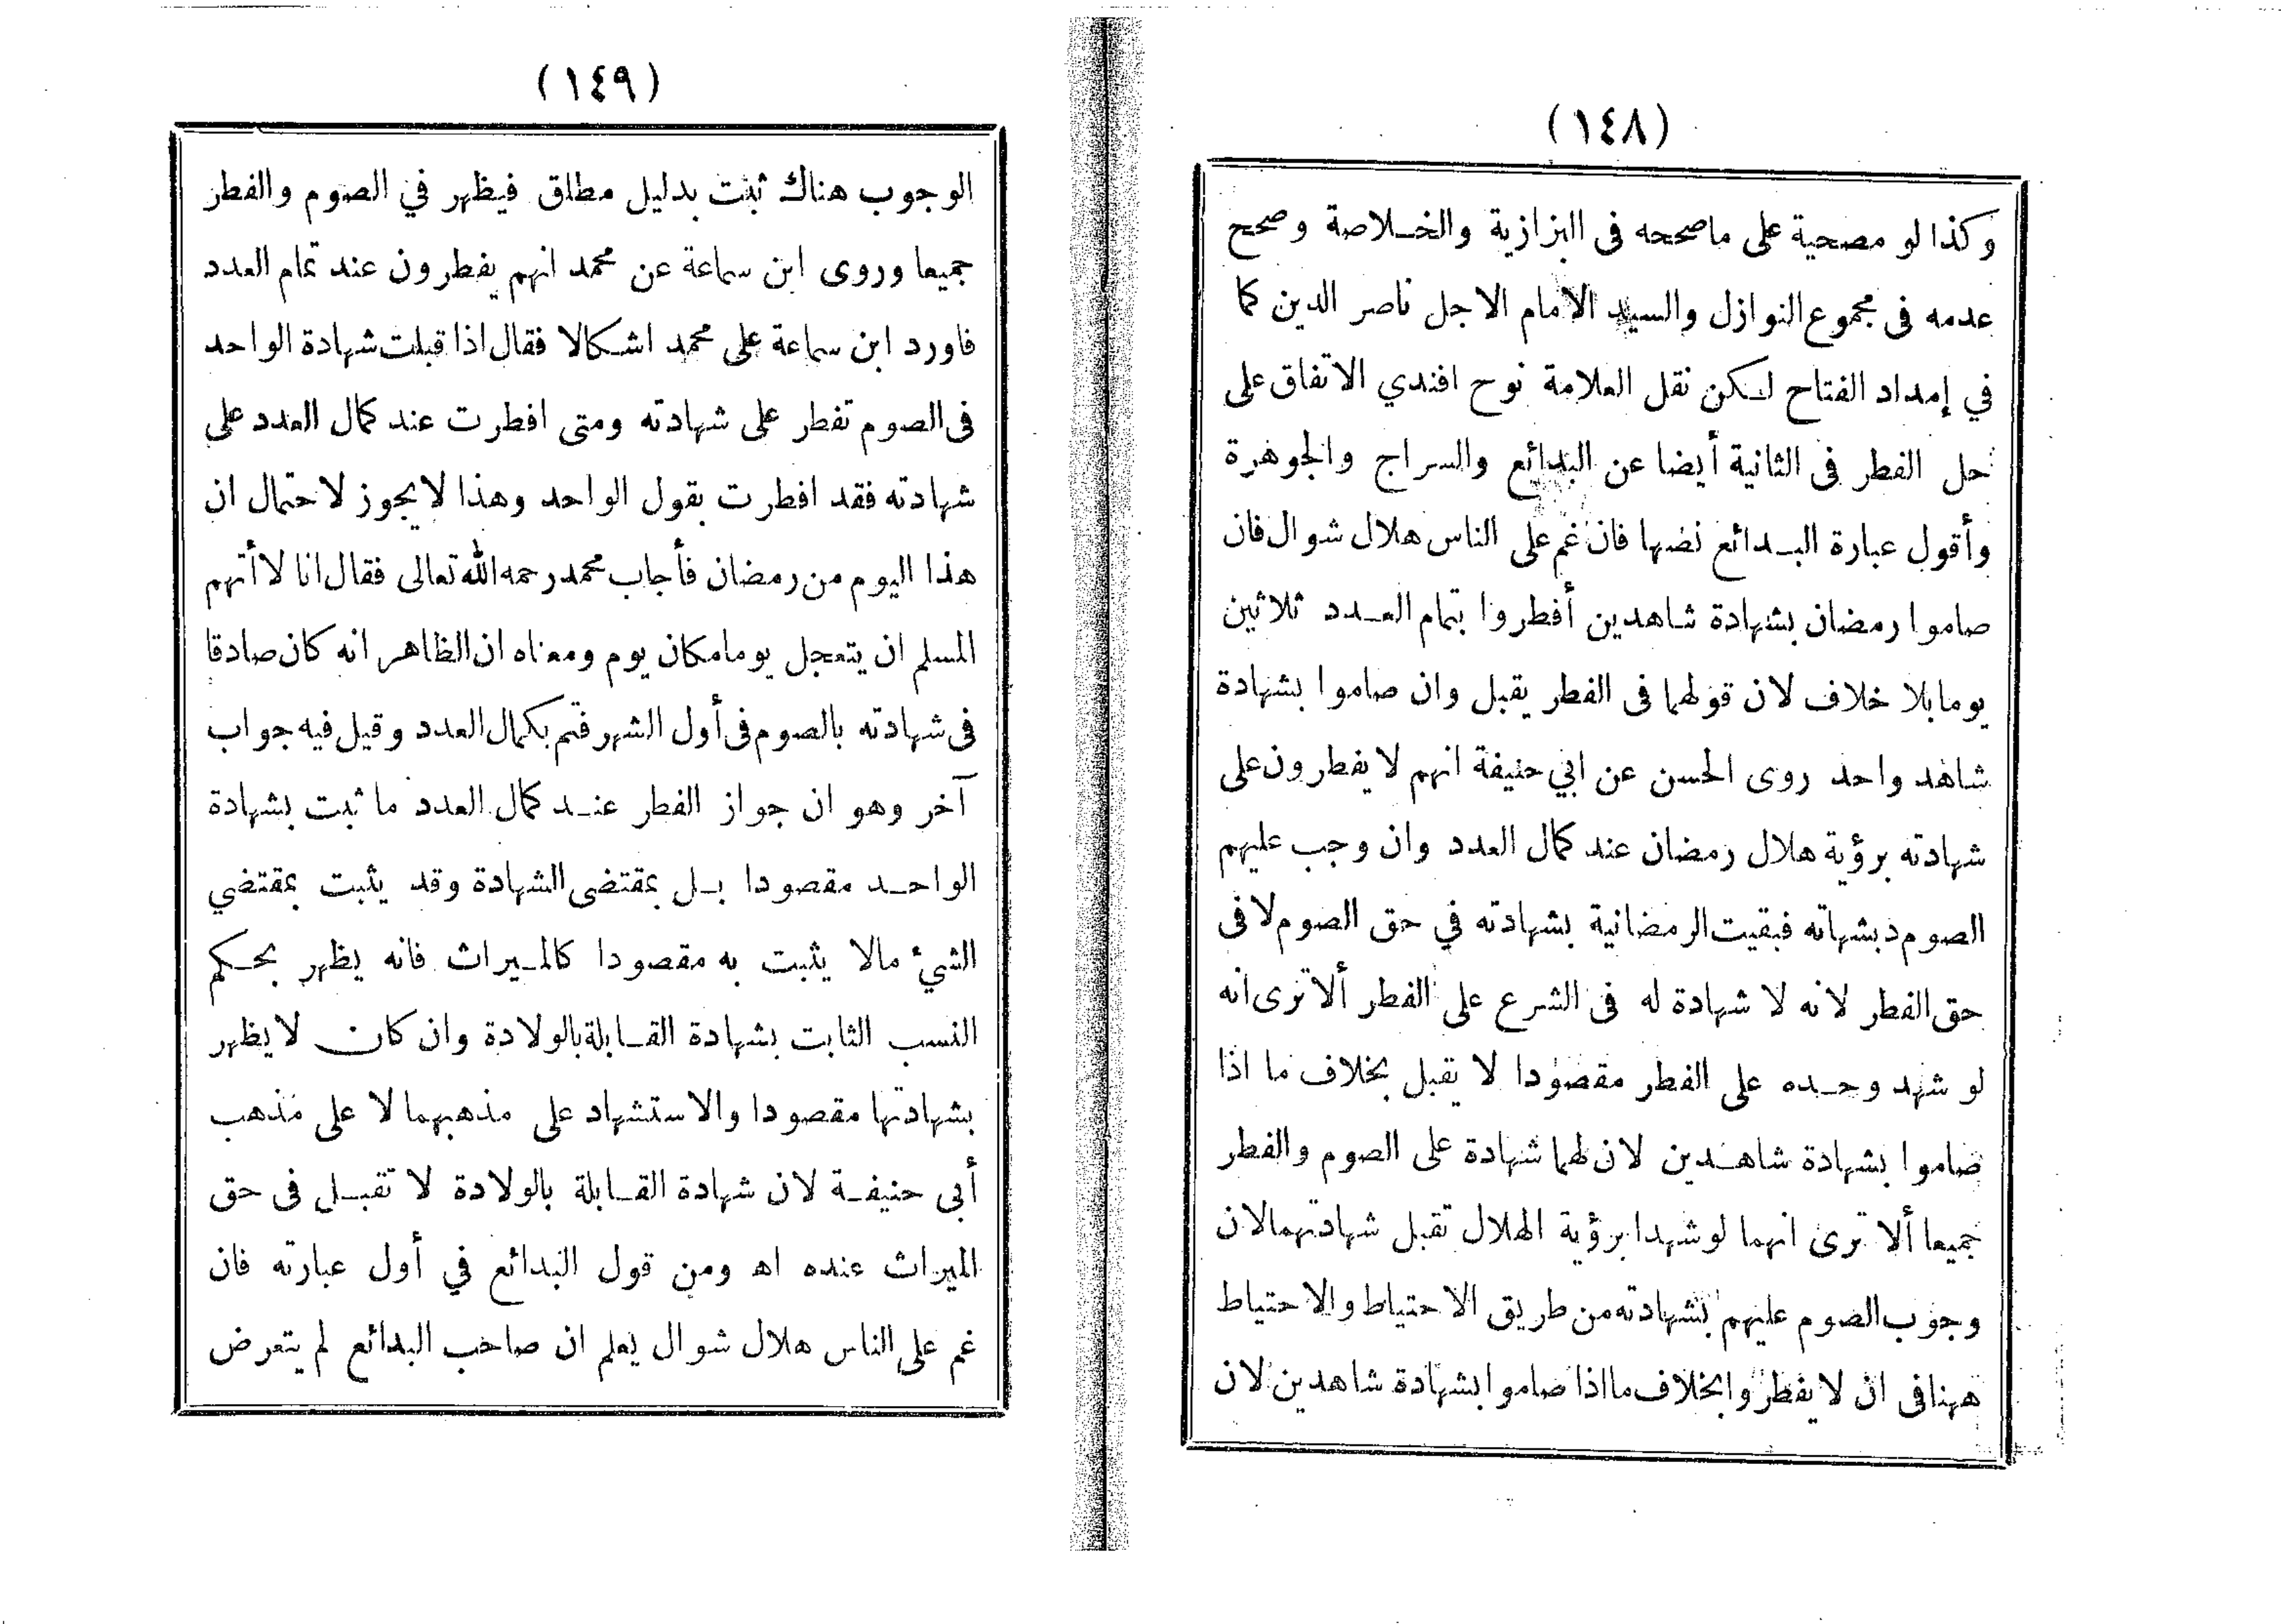 (١٤٨)
وكذا لو مصحية على ماصححه فى البزازية والخـلاصة وصحح
عدمه فى مجموع النوازل والسيد الامام الاجل ناصر الدين كما
في إمداد الفتاح لـكن نقل العلامة نوح افندي الاتفاق على
حل الفطر فى الثانية أيضا عن البدائع والسراج والجوهرة
وأقول عبارة البـدائع نصها فان غم على الناس هلال شوال فان
صاموا رمضان بشهادة شاهدين أفطروا بتمام العـدد ثلاثين
يوما بلا خلاف لان قولهما فى الفطر يقبل وان صاموا بشهادة
شاهد واحد روى الحسن عن ابي حنيفة انهم لا يفطرون على
شهادته برؤية هلال رمضان عند كمال العدد وان وجب عليهم
الصوم دبشهاته فبقيت الرمضانية بشهادته في حق الصوم لا فى
حق الفطر لانه لا شهادة له فى الشرع على الفطر ألا ترى انه
لو شهد وحـده على الفطر مقصودا لا يقبل بخلاف ما اذا
صاموا بشهادة شاهـدين لان لهما شهادة على الصوم والفطر
جميعا ألا ترى انهما لو شهدا برؤية الهلال تقبل شهادتهما لان
وجوب الصوم عليهم بشهادته من طريق الاحتياط والاحتياط
ههنا فى ان لا يفطروا بخلاف ما اذا صاموا بشهادة شاهدين لان
(١٤٩)
الوجوب هناك ثبت بدليل مطلق فيظهر في الصوم والفطر
جميعا وروى ابن سماعة عن محمد انهم يفطرون عند تمام العدد
فاورد ابن سماعة على محمد اشـكالا فقال اذا قبلت شهادة الواحد
فى الصوم تفطر على شهادته ومتى افطرت عند كمال العدد على
شهادته فقد افطرت بقول الواحد وهذا لا يجوز لاحتمال ان
هذا اليوم من رمضان فأجاب محمد رحمه الله تعالى فقال انا لا أتهم
المسلم ان يتعجل يوما مكان يوم ومعناه ان الظاهر انه كان صادقا
فى شهادته بالصوم فى أول الشهر فتم بكمال العدد وقيل فيه جواب
آخر وهو ان جواز الفطر عنـد كمال العدد ما ثبت بشهادة
الواحـد مقصودا بـل بمقتضى الشهادة وقد يثبت بمقتضي
الشيء مالا يثبت به مقصودا كالمـيراث فانه يظهر بحـكم
النسب الثابت بشهادة القـابلة بالولادة وان كان لا يظهر
بشهادتها مقصودا والاستشهاد على مذهبهما لا على مذهب
أبى حنيفـة لان شهادة القـابلة بالولادة لا تقبـل فى حق
الميراث عنده اه ومن قول البدائع في أول عبارته فان
غم على الناس هلال شوال يعلم ان صاحب البدائع لم يتعرض